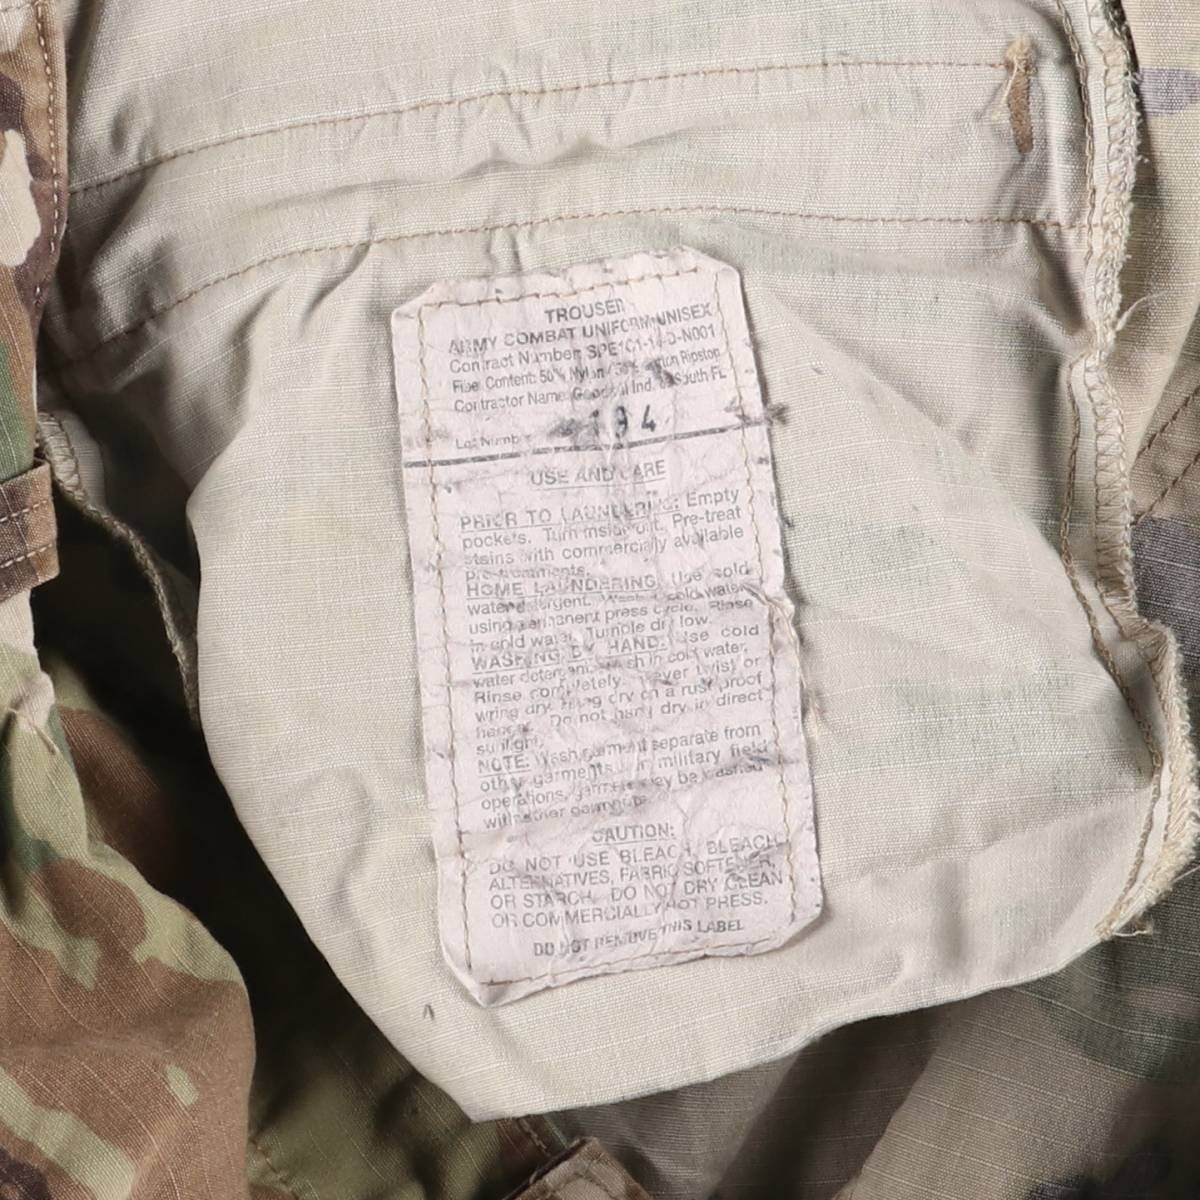 TROUSER
ARMY COMBAT UNIFORM-UNISEX
Contract Number: SPE1C1-1 -D-N001
Fiber Content: 50% Nylon / 50% Cotton Ripstop
Contractor Name: Goodwill Ind. South FL
Lot Number 194
USE AND CARE
PRIOR TO LAUNDERING: Empty
pockets. Turn inside out. Pre-treat
stains with commercially available
pre-treatments.
HOME LAUNDERING: Use cold
water detergent. Wash cold water
using permanent press cycle. Rinse
in cold water. Tumble dry low.
WASHING BY HAND: Use cold
water detergent. Wash in cold water.
Rinse completely. Never twist or
wring dry. Hang dry on a rust proof
hanger. Do not hang dry in direct
sunlight.
NOTE: Wash garment separate from
other garments. In military field
operations, garment may be washed
with other garments.
CAUTION:
DO NOT USE BLEACH, BLEACH
ALTERNATIVES, FABRIC SOFTENER,
OR STARCH. DO NOT DRY CLEAN
OR COMMERCIALLY HOT PRESS.
DO NOT REMOVE THIS LABEL